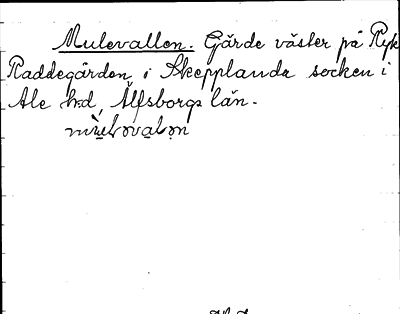 Mulevallen. Gärde väster på Ryk
Raddegården, i Skepplanda socken i
Ale hd, Älfsborgs län.